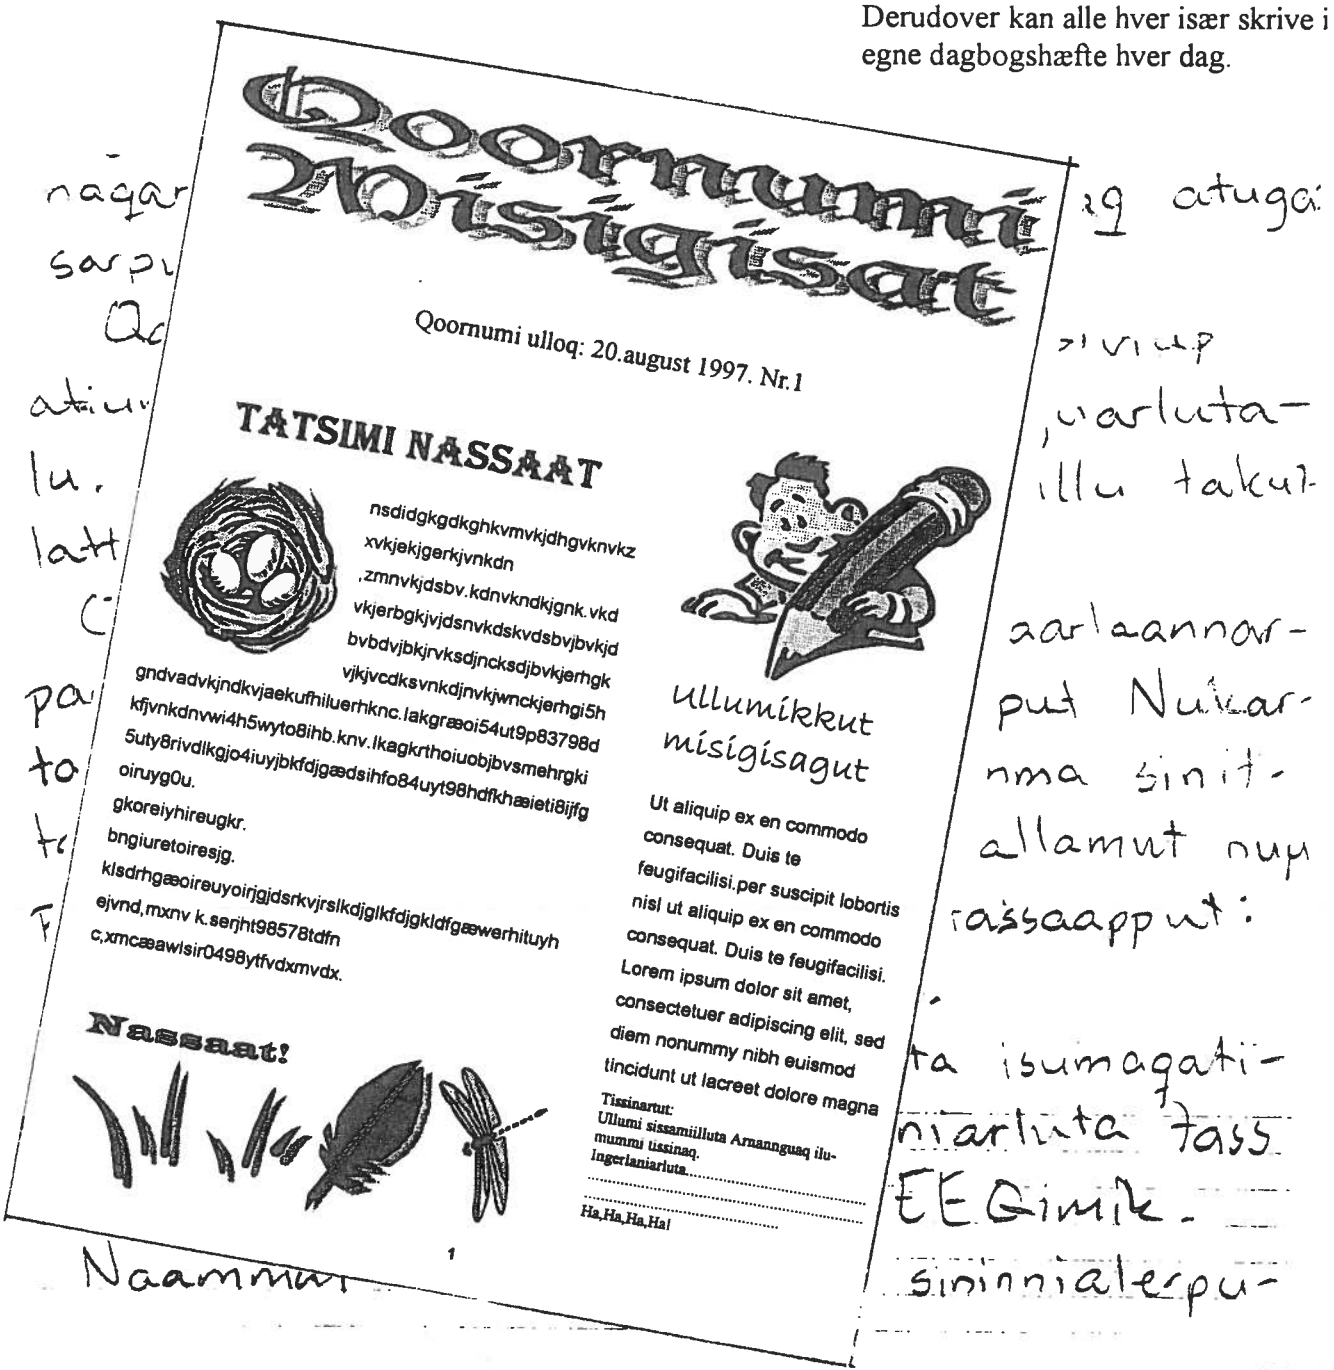 Derudover kan alle hver især skrive i
egne dagbogshæfte hver dag.
Qoornumi
Misigisat
Qoornumi ulloq: 20.august 1997. Nr.1
TATSIMI NASSAAT
nsdidgkgdkghkvmvkjdhgvknvkz
xvkjekjgerkjvnkdn
,zmnvkjdsbv.kdnvkndkjgnk.vkd
vkjerbgkjvjdsnvkdskvdsbvjbvkjd
bvbdvjbkjrvksdjncksdjbvkjerhgk
vjkjvcdksvnkdjnvkjwnckjerhgi5h
gndvadvkjndkvjaekufhiluerhknc.lakgræoi54ut9p83798d
kfjvnkdnvwi4h5wyto8ihb.knv.lkagkrthoiuobjbvsmehrgki
5uty8rivdlkgjo4iuyjbkfdjgædsihfo84uyt98hdfkhæieti8ijfg
oiruyg0u.
gkoreiyhireugkr.
bngiuretoiresjg.
klsdrhgæoireuyoirjgjdsrkvjrslkdjglkfdjgkldfgæwerhituyh
ejvnd,mxnv k.serjht98578tdfn
c,xmcæawlsir0498ytfvdxmvdx.
Nassaat!
Ullumikkut
misigisagut
Ut aliquip ex en commodo
consequat. Duis te
feugifacilisi.per suscipit lobortis
nisl ut aliquip ex en commodo
consequat. Duis te feugifacilisi.
Lorem ipsum dolor sit amet,
consectetuer adipiscing elit, sed
diem nonummy nibh euismod
tincidunt ut lacreet dolore magna
Tissinartut:
Ullumi sissamiilluta Arnannguaq ilu-
mummi tissinaq.
Ingerlaniarluta......................................................
......................................................................................
............................................................
Ha,Ha,Ha,Ha!
1
naqar
atuga
lu.
illu takut
put Nukar-
sinit-
allamut
isumaqati-
niarluta Tass
EEQimik.
sininnialerpu-